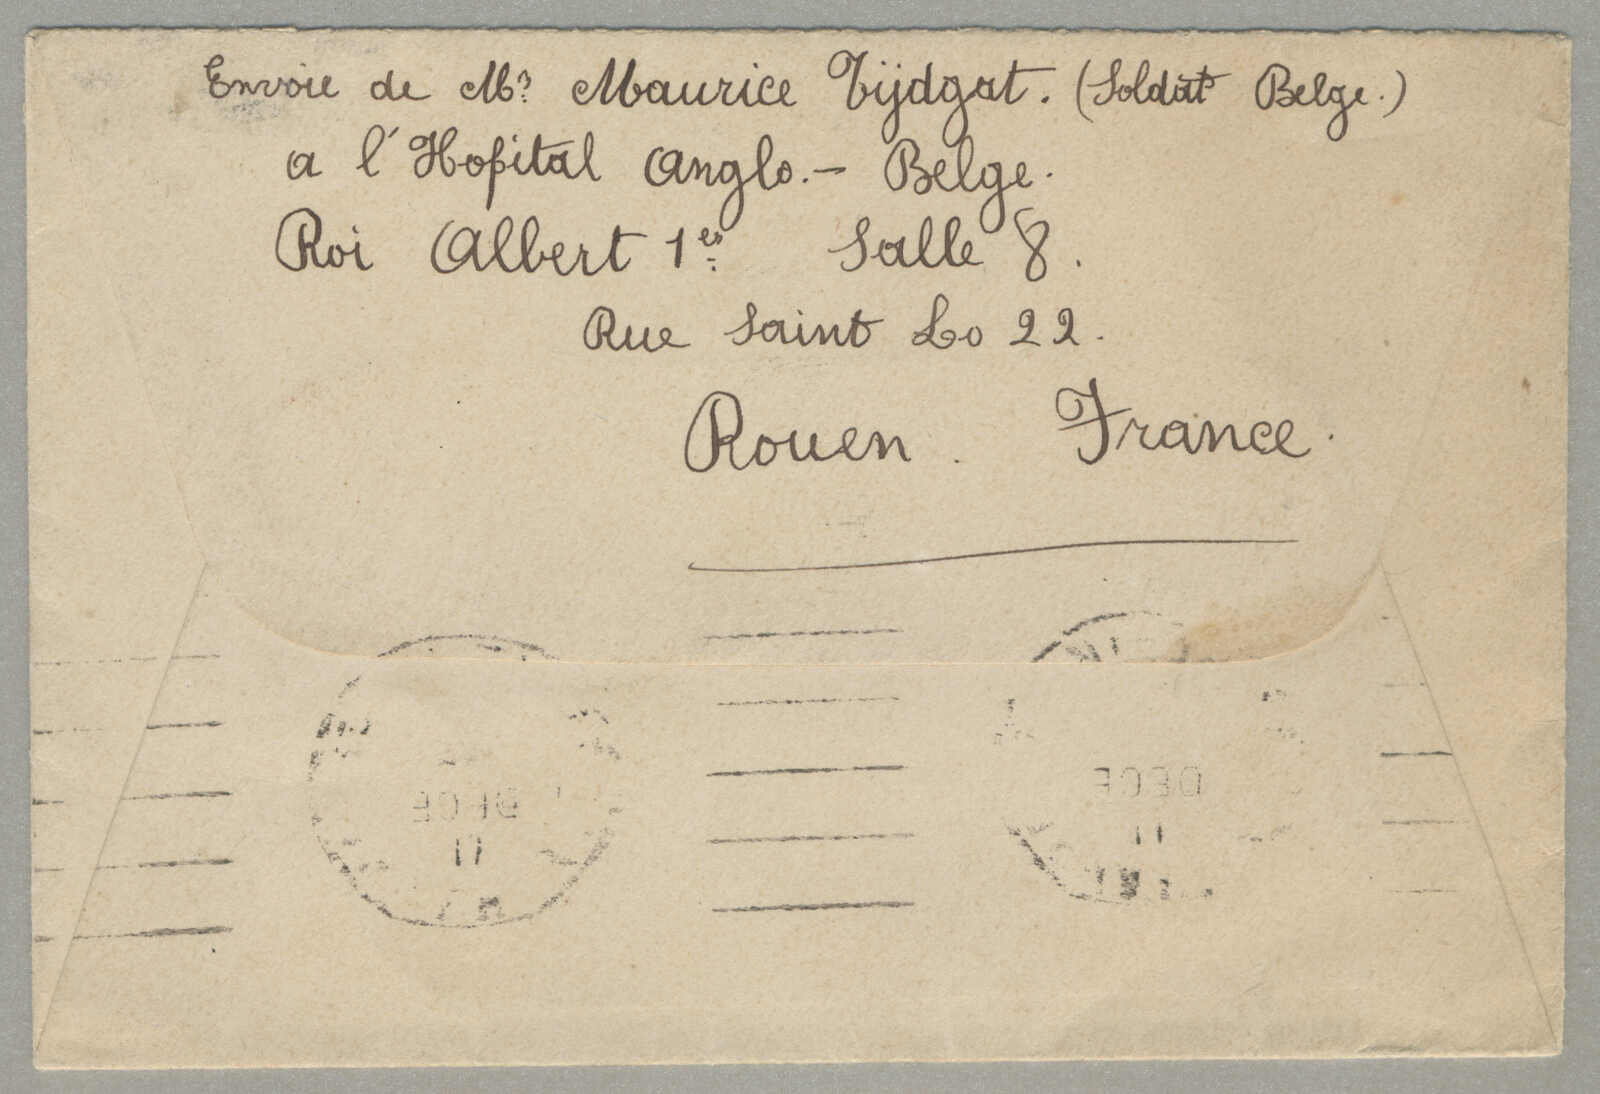 Envoie de Mr Maurice Tijdgat. (Soldat Belge.)
a l'Hopital Anglo.- Belge.
Roi Albert 1er Salle 8.
Rue Saint Lo 22.
Rouen. France.
DECE
11
DECE
11